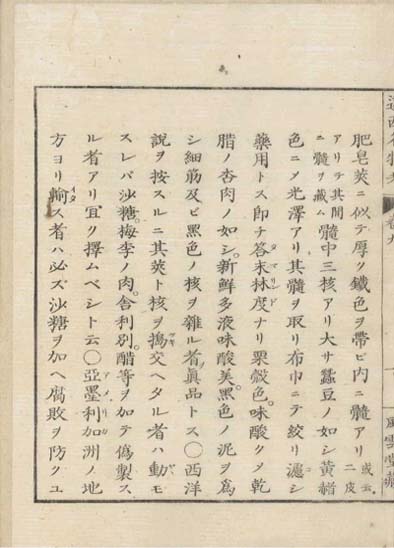 肥皂莢ニ似テ厚ク鐵色ヲ帶ビ内ニ髓アリ或云二皮
アリテ其間ニ髓ヲ藏ム髓中三核アリ大サ蠶豆ノ如シ黄緒
色ニ〆光澤アリ其髓ヲ取リ布巾ニテ絞リ濾シ
藥用トス即チ答末林度ナリ栗殼色。味酸ク〆乾
腊ノ杏肉ノ如シ。新鮮多液味酸美。黑色ノ泥ヲ爲
シ細筋及ビ黑色ノ核ヲ雜ル者眞品トス〇西洋
説ヲ按スルニ其莢ト核ヲ搗交ヘタル者ハ動モ
スレバ沙糖。梅李ノ肉。舎利別。醋等ヲ加テ僞製ス
ル者アリ宜ク擇ムベシト云〇亞墨利加洲ノ地
方ヨリ輸ス者ハ必ズ沙糖ヲ加ヘ腐敗ヲ防クユ